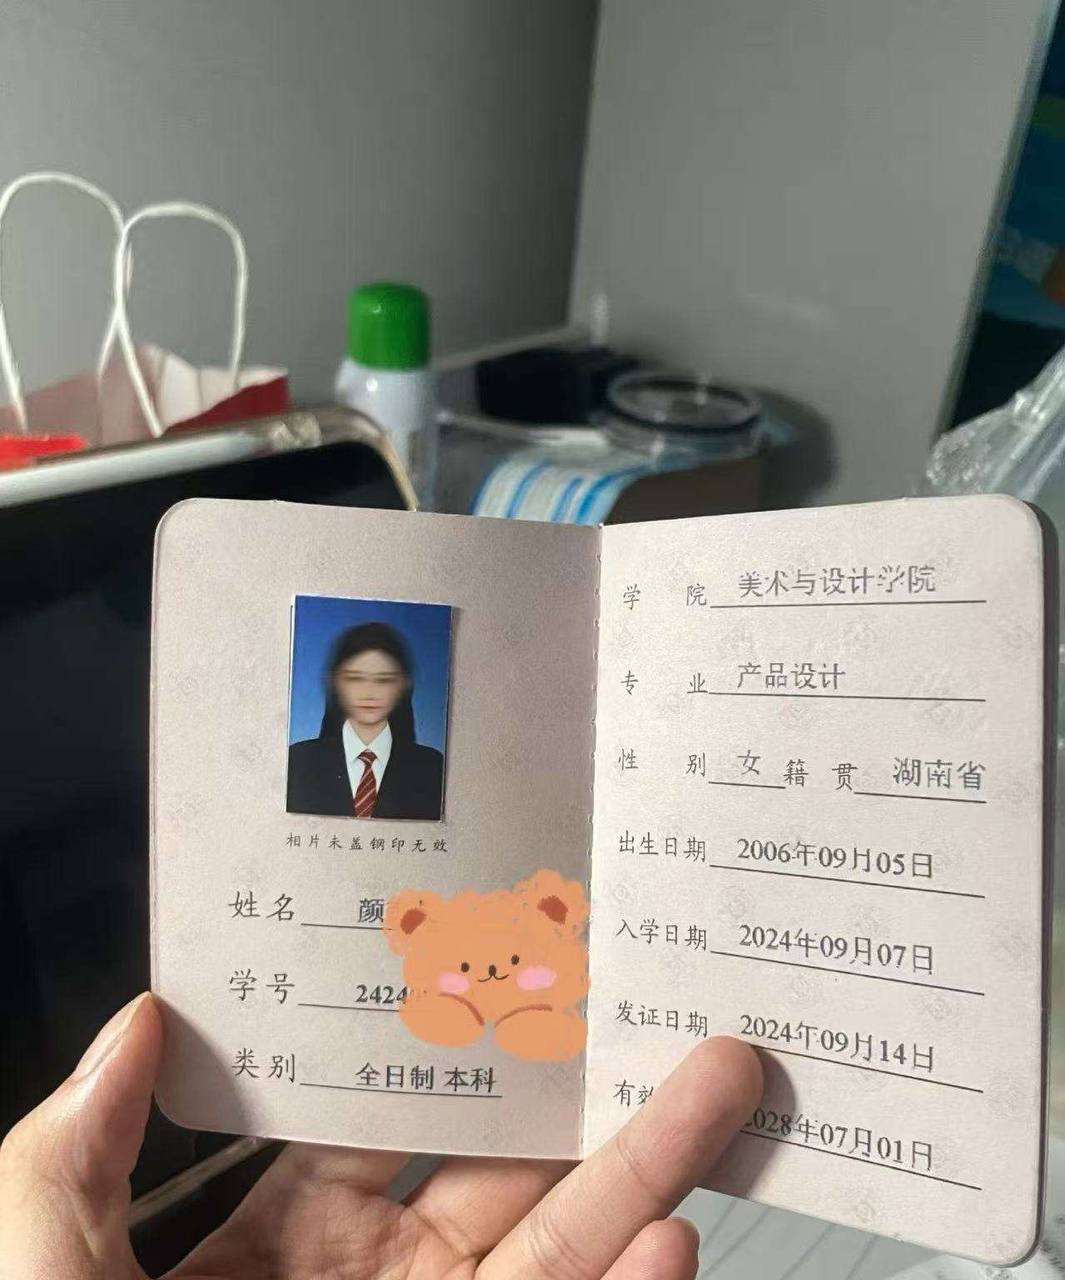 相片未盖钢印无效
姓名 颜
学号 2424
类别 全日制 本科
学 院 美术与设计学院
专 业 产品设计
性 别 女 籍 贯 湖南省
出生日期 2006年09月05日
入学日期 2024年09月07日
发证日期 2024年09月14日
有效 2028年07月01日